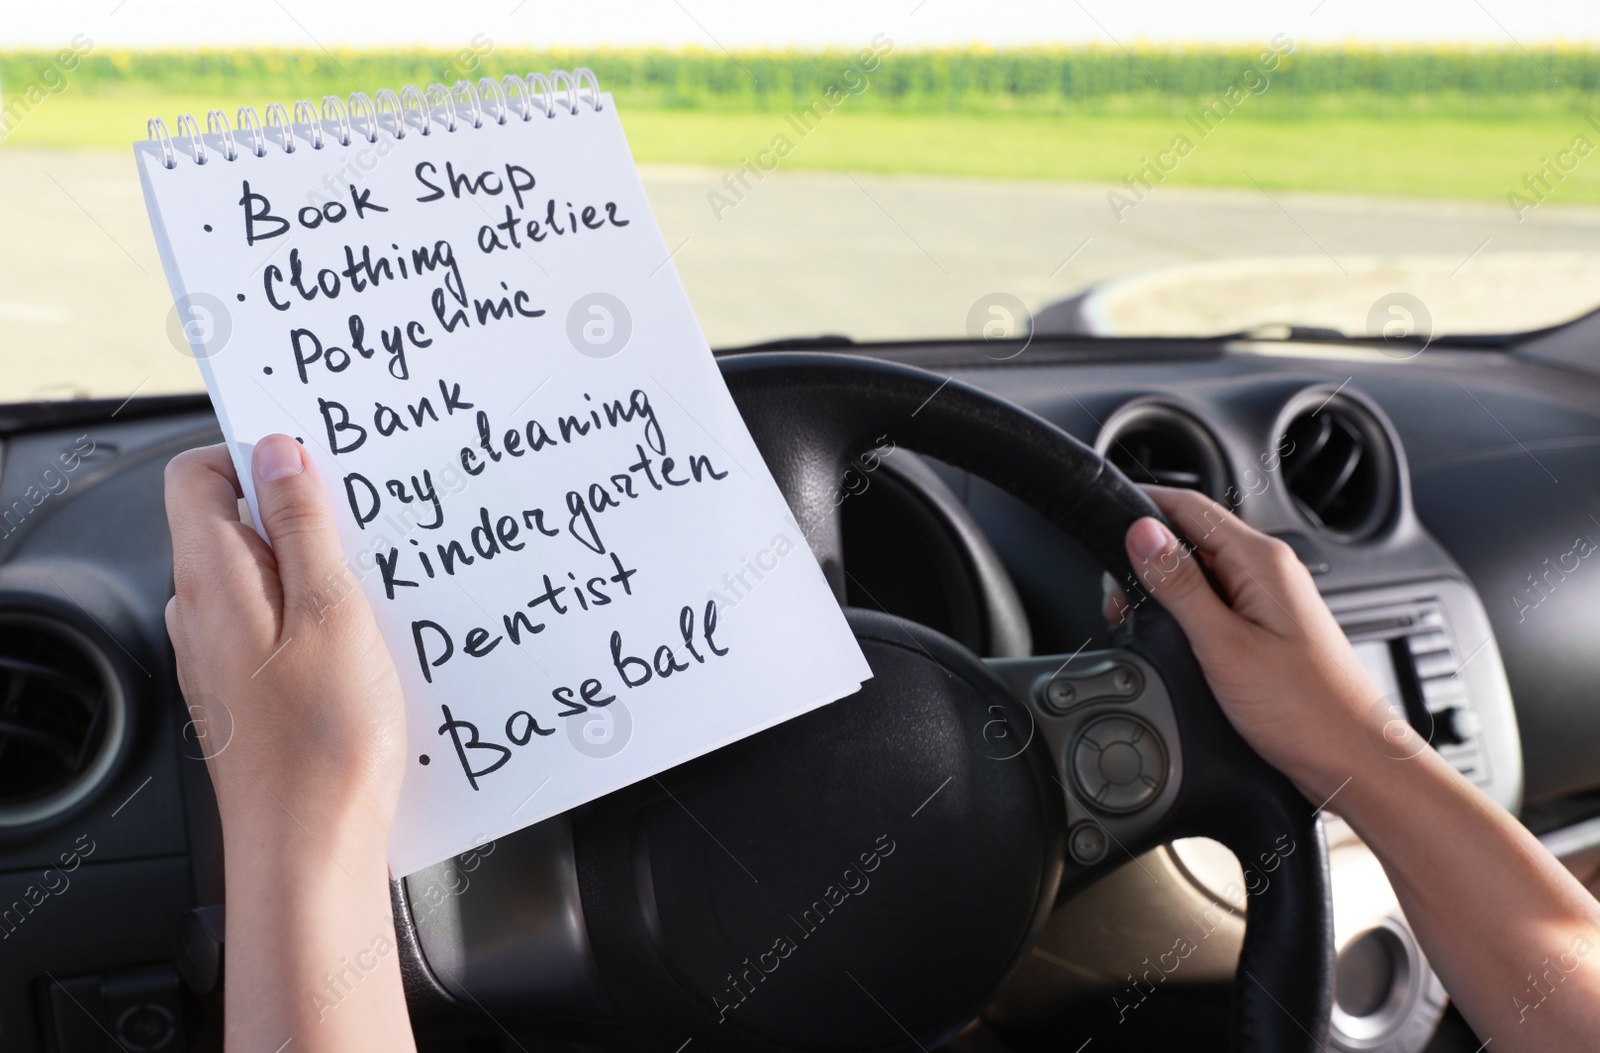 · Book Shop
· Clothing atelier
· Polyclinic
· Bank
Dry cleaning
Kindergarten
Dentist
· Baseball
Africa Images
a